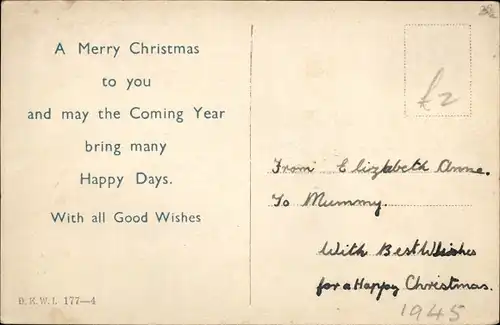 A Merry Christmas
to you
and may the Coming Year
bring many
Happy Days.
With all Good Wishes
D. K. W. L. 177—4
£2
From Elizabeth Anne.
To Mummy.
With Best Wishes
for a Happy Christmas.
1945